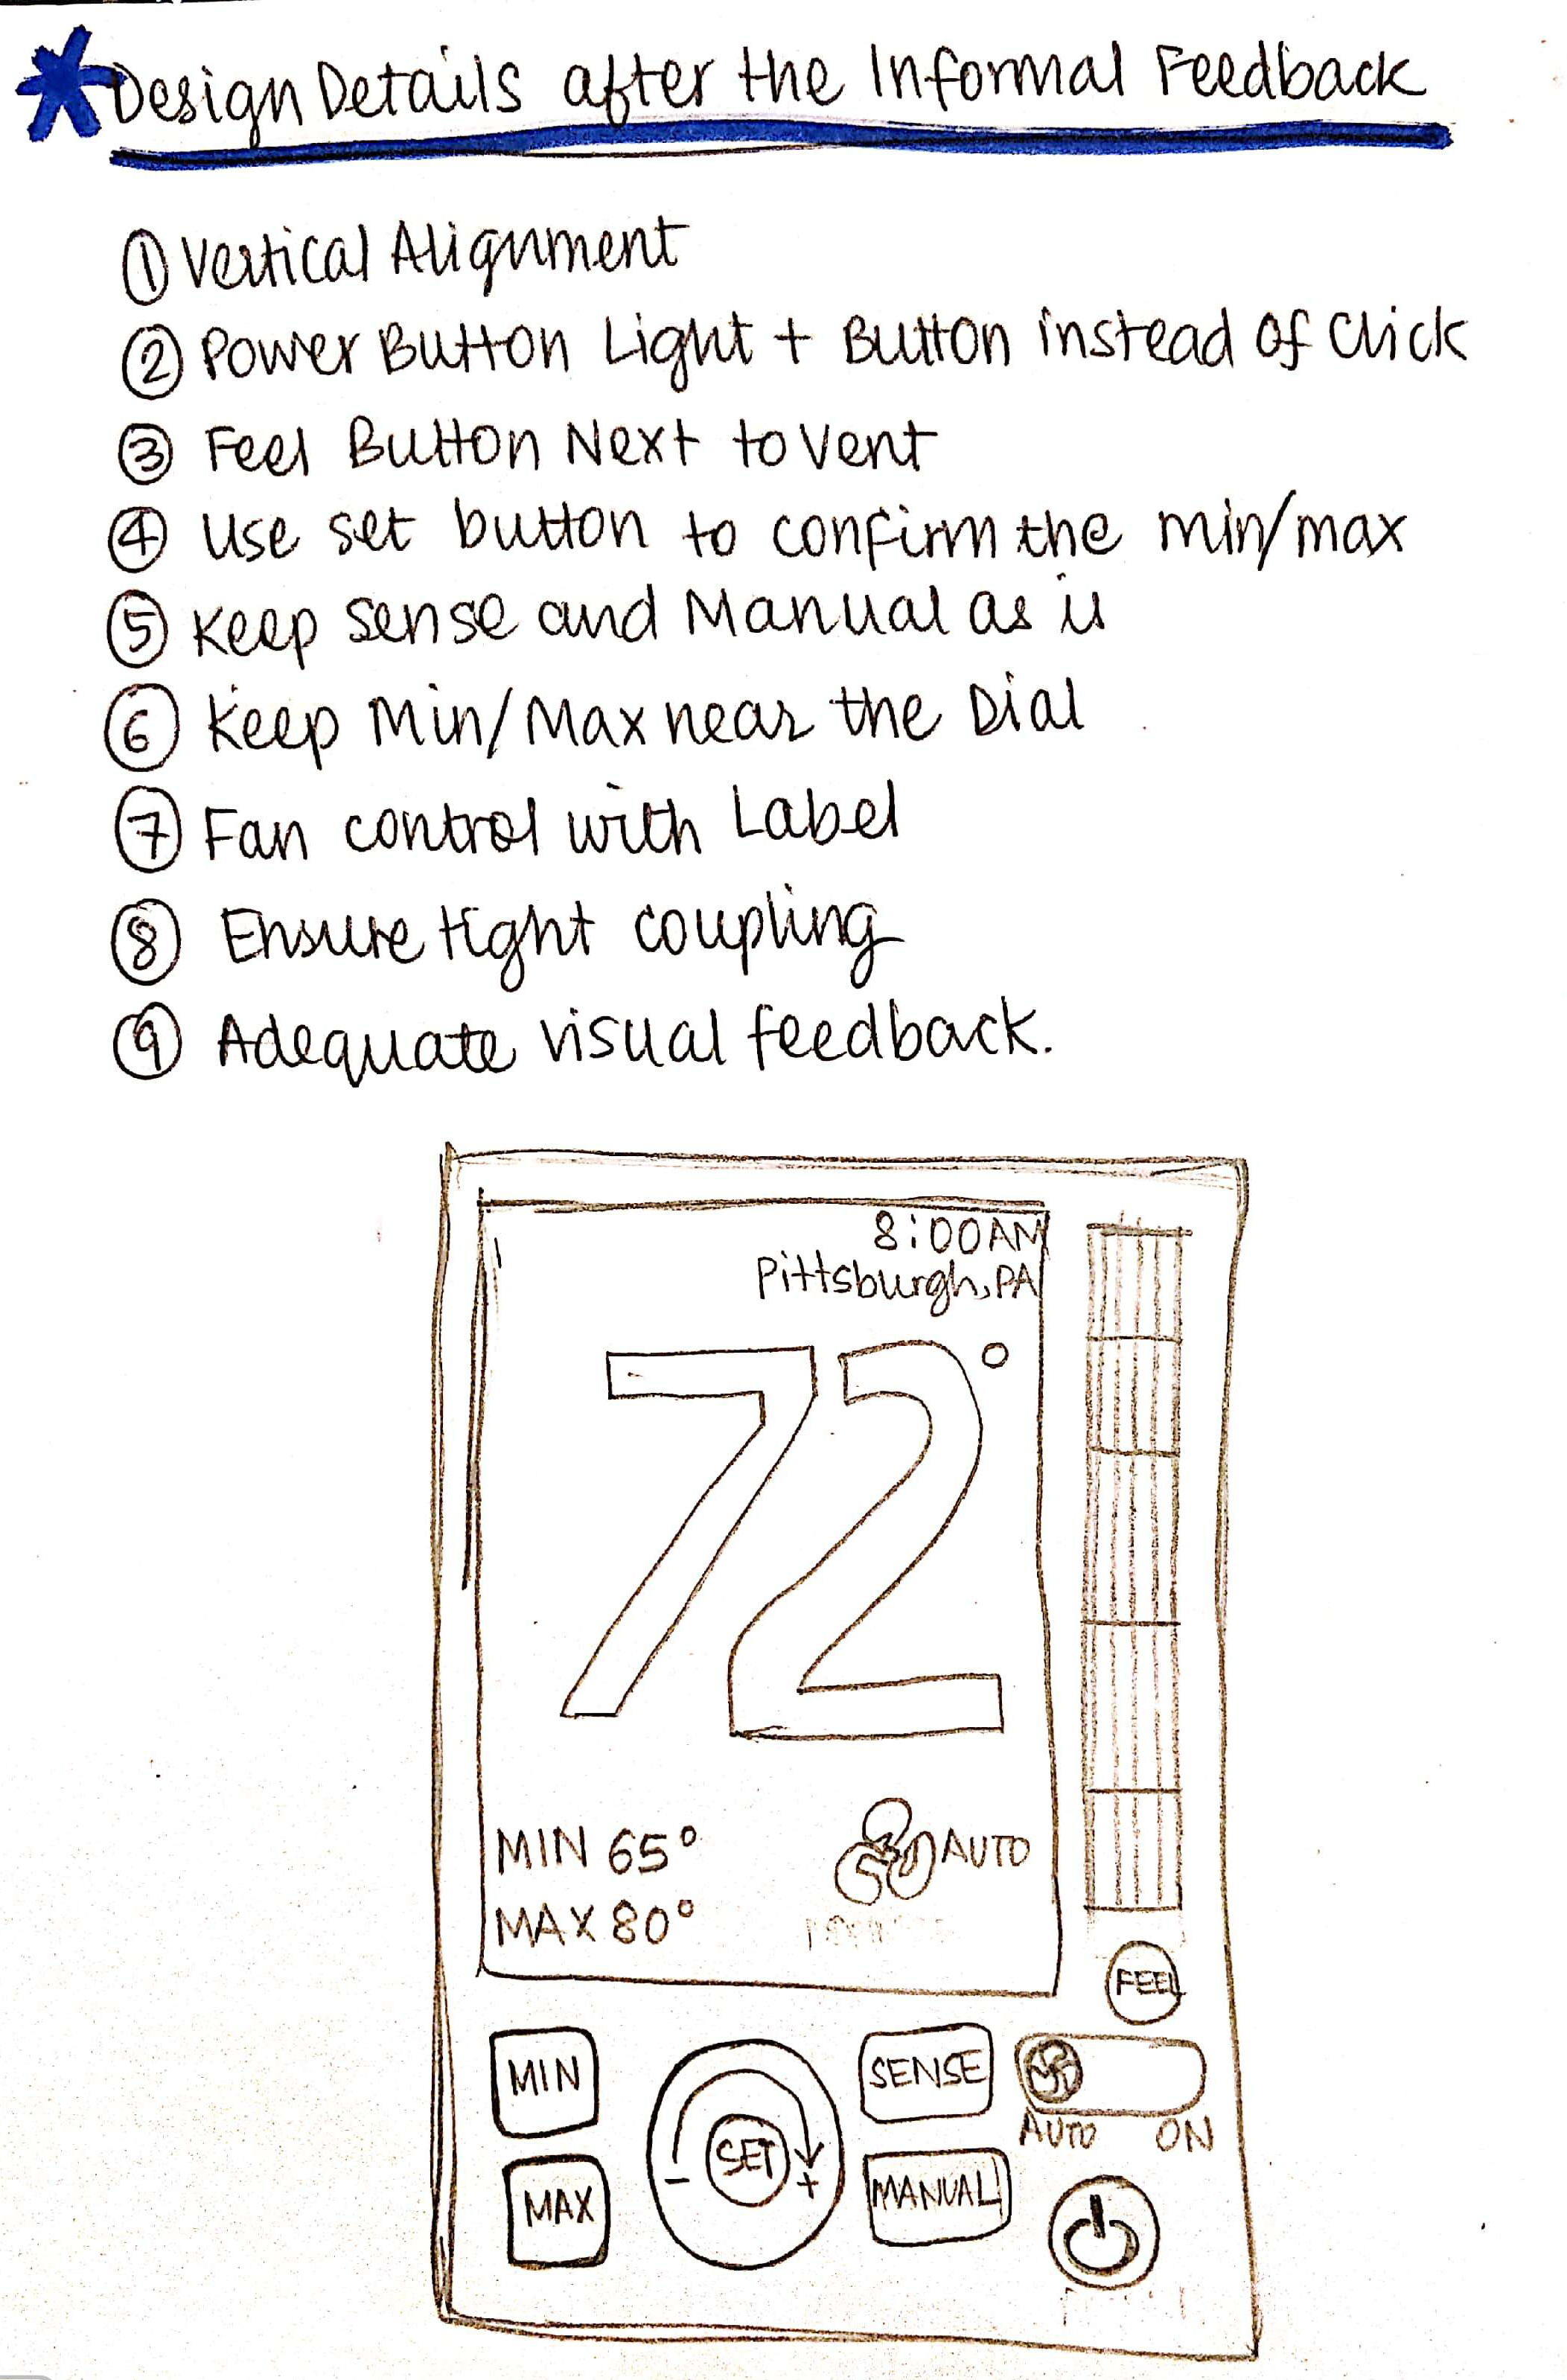 Design Details after the Informal Feedback
① Vertical Alignment
② Power Button Light + Button instead of Click
③ Feel Button Next to Vent
④ Use set button to confirm the min/max
⑤ Keep Sense and Manual as is
⑥ Keep Min/Max near the Dial
⑦ Fan control with Label
⑧ Ensure tight coupling
⑨ Adequate visual feedback.
8:00AM
Pittsburgh, PA
72°
MIN 65°
AUTO
MAX 80°
FEEL
MIN
SENSE
SET
- +
AUTO ON
MAX
MANUAL